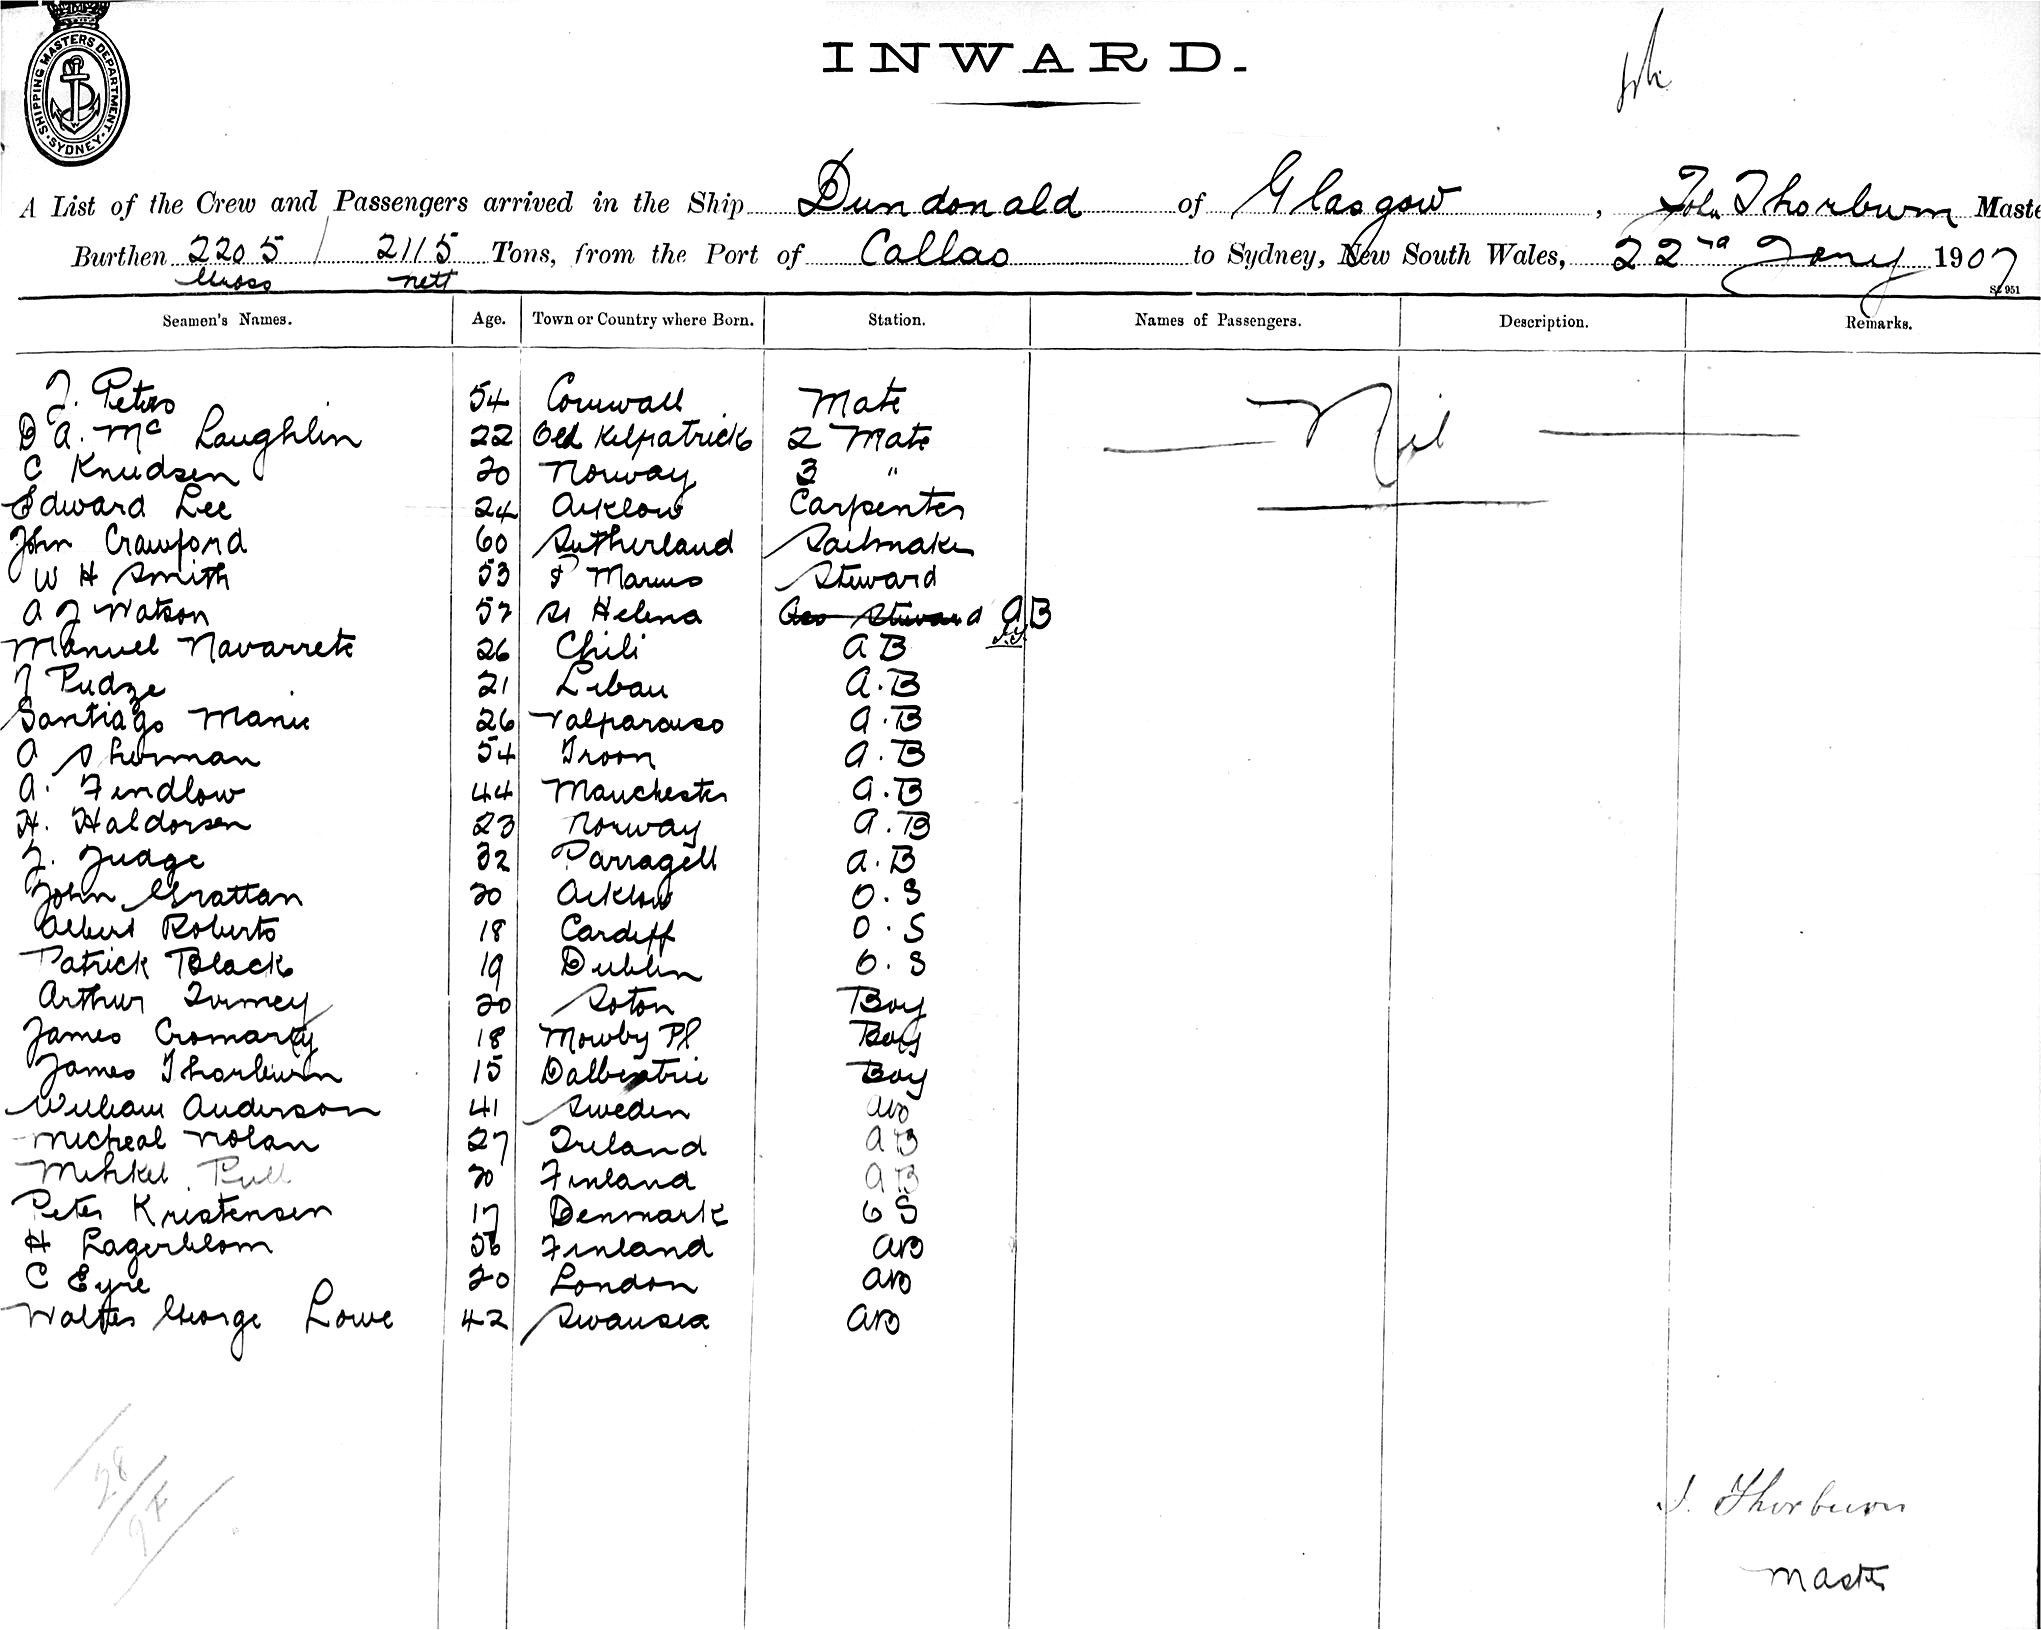 SHIPPING MASTERS DEPARTMENT
SYDNEY
INWARD.
A List of the Crew and Passengers arrived in the Ship Dundonald of Glasgow, John Thorburn Maste
Burthen 2205 / 2115 Tons, from the Port of Callao to Sydney, New South Wales, 22nd Jany 1907
Gross nett
St 951
Seamen's Names. Age. Town or Country where Born. Station. Names of Passengers. Description. Remarks.
J. Peters 54 Cornwall Mate
Nil
D A. Mc Laughlin 22 Old Kilpatrick 2 Mate
C Knudsen 20 Norway 3 "
Edward Lee 24 Arklow Carpenter
John Crawford 60 Sutherland Sailmaker
W H Smith 53 Steward
A J Watson 57 St Helena Steward AB
Manuel Navarrete 26 Chili A B
J Pudze 21 Libau A.B
Santiago Marin 26 Valparaiso A.B
A Sherman 54 Troon A.B
A. Findlow 44 Manchester A.B
H. Haldorsen 23 Norway A.B
J. Judge 32 A.B
John Grattan 20 Arklow O.S
Albert Roberts 18 Cardiff O.S
Patrick Black 19 Dublin O.S
Arthur 20 Soton Boy
James Cromarty 18 Boy
James Thorburn 15 Dalbeattie Boy
William Anderson 41 Sweden AB
Micheal Nolan 27 Ireland AB
Mihkel Pull 20 Finland AB
Peter Kristensen 17 Denmark O S
H Lagerblom 56 Finland AB
C Eyre 20 London AB
Walter George Lowe 42 Swansea AB
28
J. Thorburn
Master